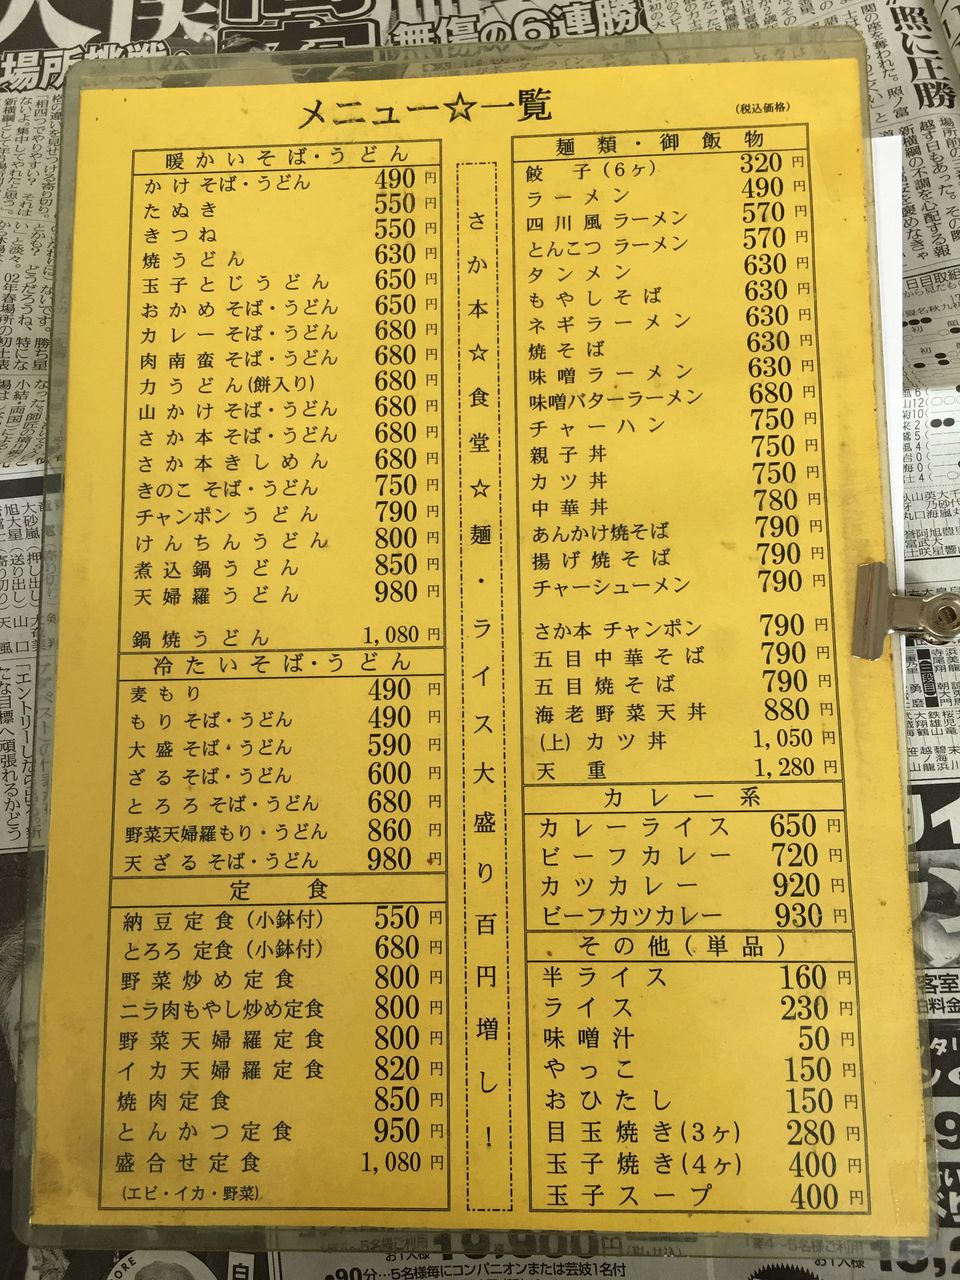 メニュー☆一覧
(税込価格)
暖かいそば・うどん
かけそば・うどん 490円
たぬき 550円
きつね 550円
焼うどん 630円
玉子とじうどん 650円
おかめそば・うどん 650円
カレーそば・うどん 680円
肉南蛮そば・うどん 680円
力うどん(餅入り) 680円
山かけそば・うどん 680円
さか本そば・うどん 680円
さか本きしめん 680円
きのこそば・うどん 750円
チャンポンうどん 790円
けんちんうどん 800円
煮込鍋うどん 850円
天婦羅うどん 980円
鍋焼うどん 1,080円
冷たいそば・うどん
麦もり 490円
もりそば・うどん 490円
大盛そば・うどん 590円
ざるそば・うどん 600円
とろろそば・うどん 680円
野菜天婦羅もり・うどん 860円
天ざるそば・うどん 980円
定食
納豆定食(小鉢付) 550円
とろろ定食(小鉢付) 680円
野菜炒め定食 800円
ニラ肉もやし炒め定食 800円
野菜天婦羅定食 800円
イカ天婦羅定食 820円
焼肉定食 850円
とんかつ定食 950円
盛合せ定食 1,080円
(エビ・イカ・野菜)
さか本☆食堂☆麺・ライス大盛り百円増し!
麺類・御飯物
餃子(6ヶ) 320円
ラーメン 490円
四川風ラーメン 570円
とんこつラーメン 570円
タンメン 630円
もやしそば 630円
ネギラーメン 630円
焼そば 630円
味噌ラーメン 630円
味噌バターラーメン 680円
チャーハン 750円
親子丼 750円
カツ丼 750円
中華丼 780円
あんかけ焼そば 790円
揚げ焼そば 790円
チャーシューメン 790円
さか本チャンポン 790円
五目中華そば 790円
五目焼そば 790円
海老野菜天丼 880円
(上)カツ丼 1,050円
天重 1,280円
カレー系
カレーライス 650円
ビーフカレー 720円
カツカレー 920円
ビーフカツカレー 930円
その他(単品)
半ライス 160円
ライス 230円
味噌汁 50円
やっこ 150円
おひたし 150円
目玉焼き(3ヶ) 280円
玉子焼き(4ヶ) 400円
玉子スープ 400円
無傷の6連勝
照に圧勝
●90分…5名様毎にコンパニオンまたは芸妓1名付